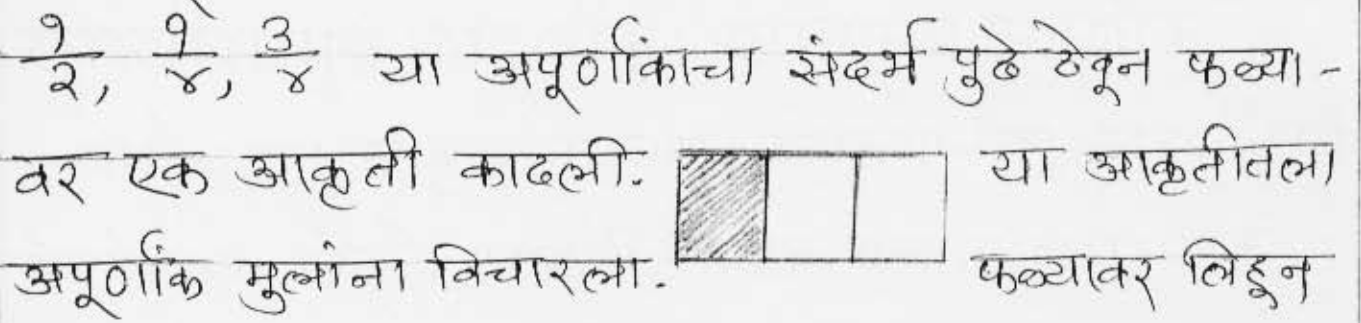 १/२, १/४, ३/४ या अपूर्णांकांचा संदर्भ पुढे ठेवून फळ्या -
वर एक आकृती काढली. या आकृतीतला
अपूर्णांक मुलांना विचारला. फळ्यावर लिहून